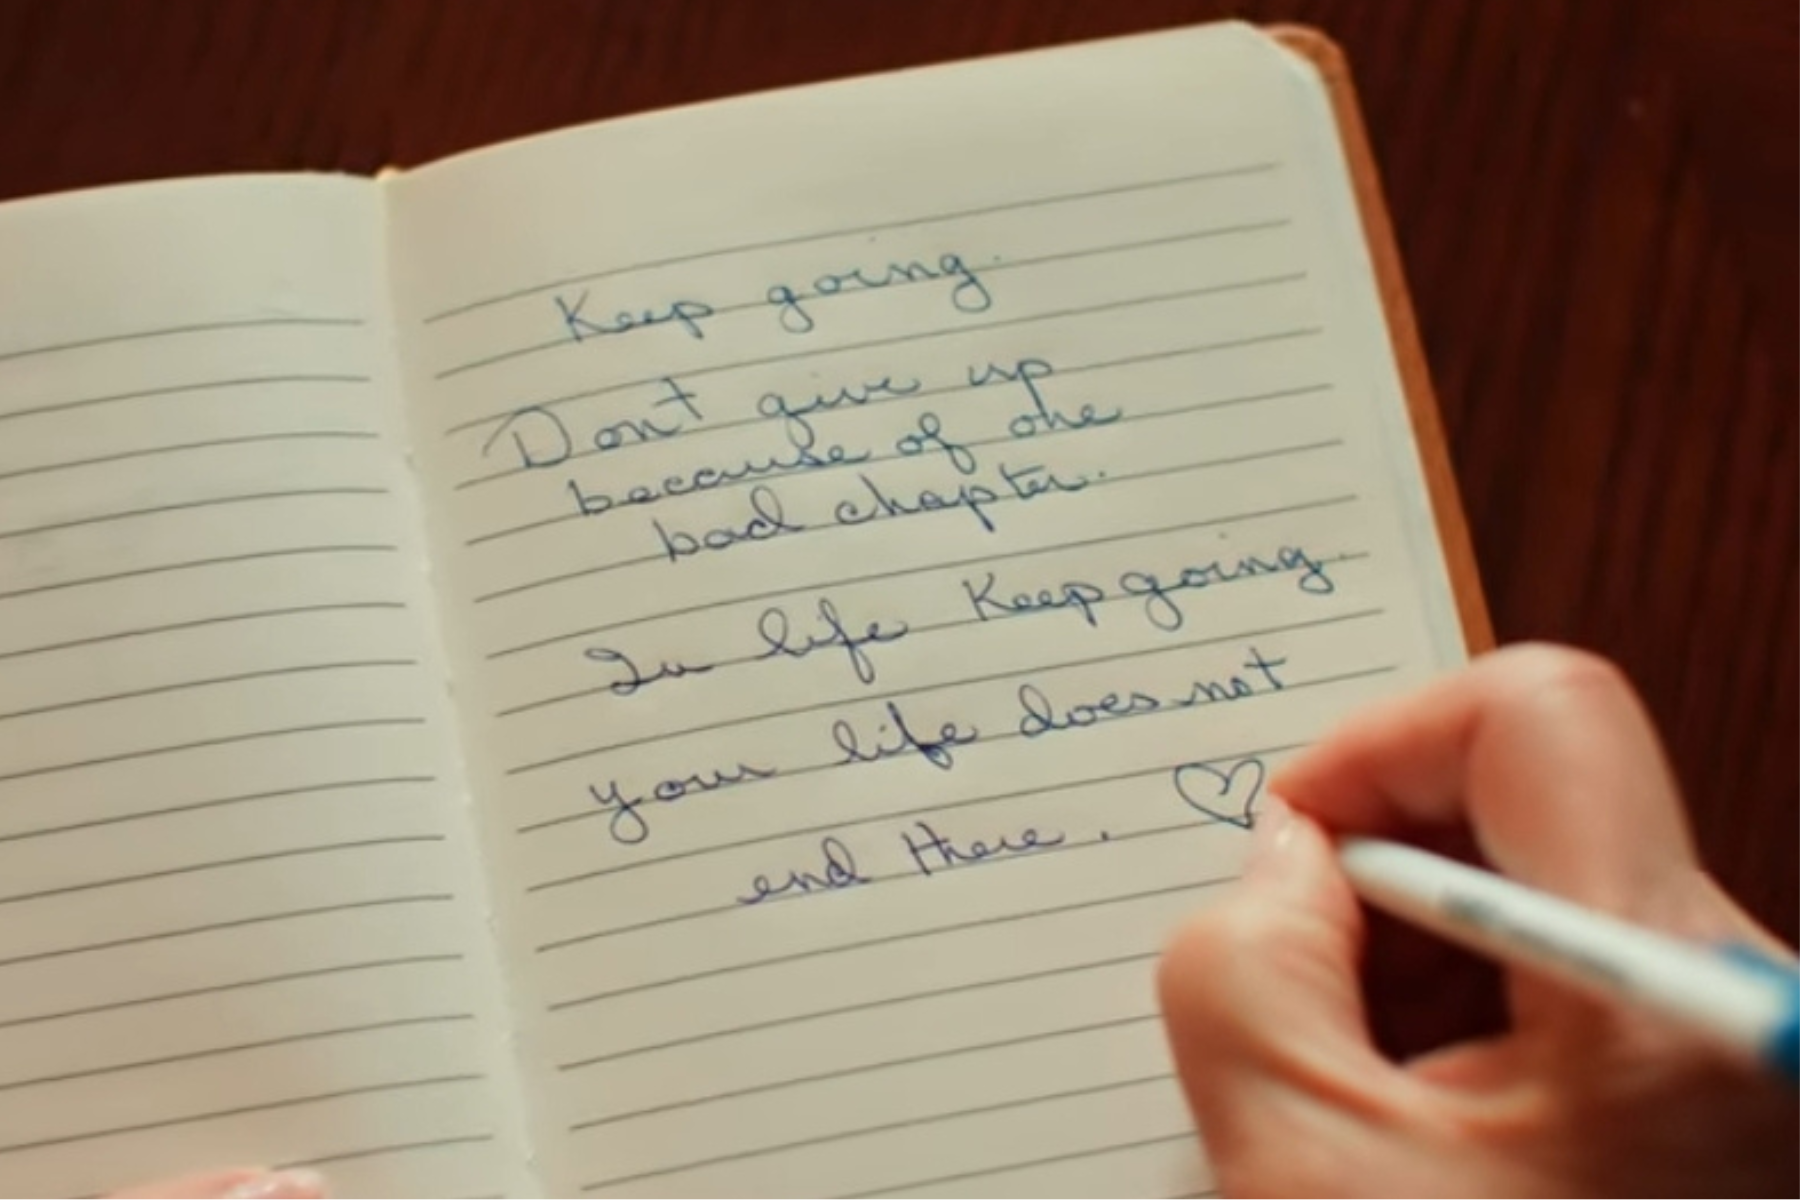 Keep going.
Don't give up
because of one
bad chapter.
In life Keep going.
your life does not
end there.